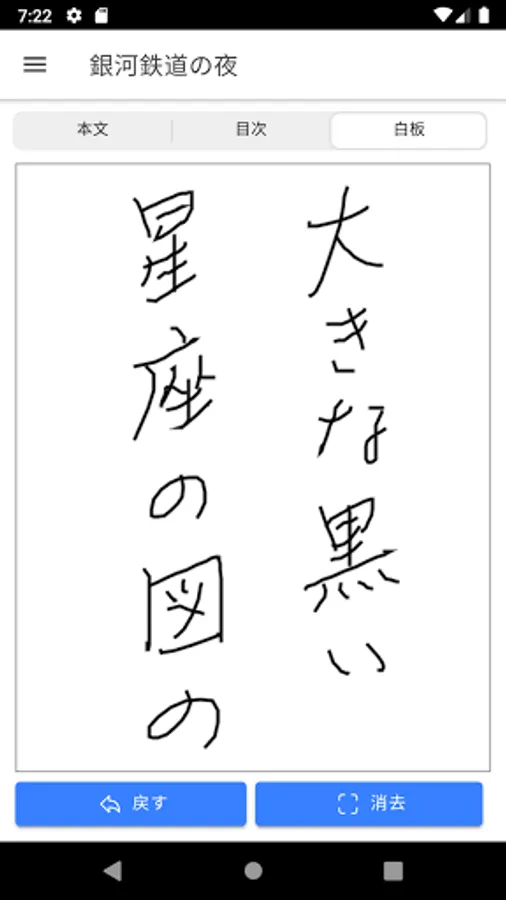 7:22
銀河鉄道の夜
本文
目次
白板
大きな黒い
星座の図の
戻す
消去